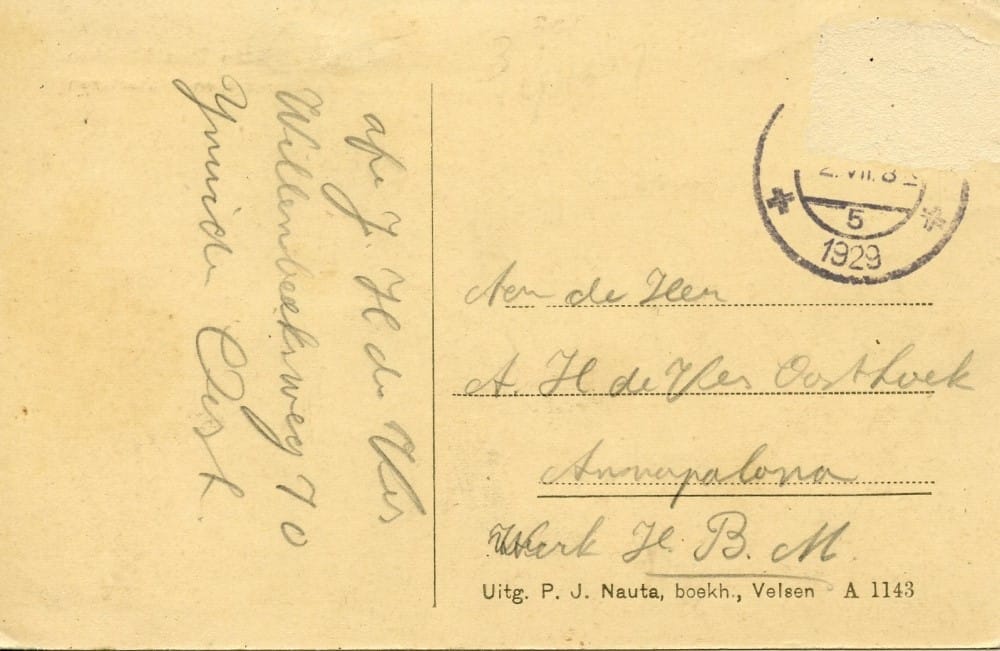 afz J. H de Vles
Willembeekweg 70
Ymuiden Oost
2. VII. 8
5
1929
Aen de Heer
A. H de Vles Oosthoek
Annapalona
Werk H. B. M.
Uitg. P. J. Nauta, boekh., Velsen A 1143